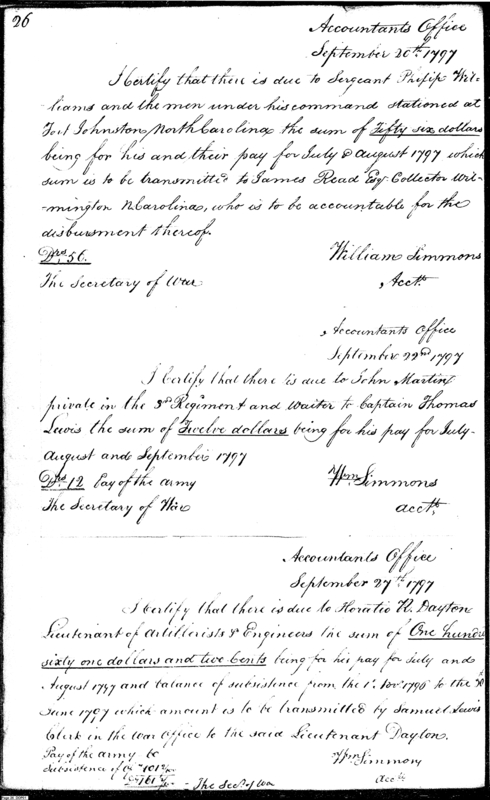 26
Accountants Office
September 20th 1797
I Certify that there is due to Sergeant Philip Wil-
liams and the men under his command stationed at
Fort Johnston North Carolina the sum of Fifty six dollars
being for his and their pay for July & August 1797 which
sum is to be transmitted to James Read Esqr Collector Wil-
mington N Carolina, who is to be accountable for the
disbursment thereof.
Drs 56.
William Simmons
The Secretary of War
Acctt.
Accountants Office
September 22nd 1797
I Certify that there is due to John Martin
private in the 3rd Regiment and Waiter to Captain Thomas
Lewis the sum of Twelve dollars being for his pay for July
August and September 1797
Drs. 12 Pay of the army
Wm Simmons
The Secretary of War
acctt.
Accountants Office
September 27th 1797
I Certify that there is due to Horatio R. Dayton
Lieutenant of Artillerists & Engineers the sum of One hundred
sixty one dollars and two Cents being for his pay for July and
August 1797 and balance of subsistence from the 1st Nov 1796 to the
June 1797 which amount is to be transmitted by Samuel Lewis
Clerk in the War Office to the said Lieutenant Dayton.
Pay of the army
Wm Simmons
Subsistence of
Acctt
161 - The Secy. of War